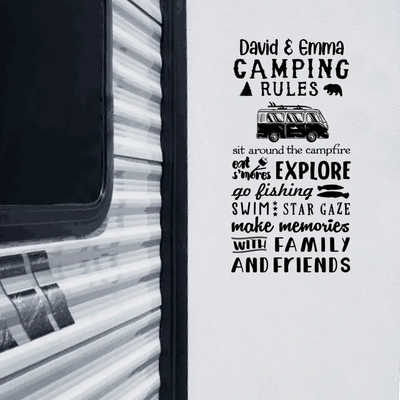 David & Emma
CAMPING
RULES
sit around the campfire
eat s'mores EXPLORE
go fishing
SWIM STAR GAZE
make memories
WITH FAMILY
AND FRIENDS